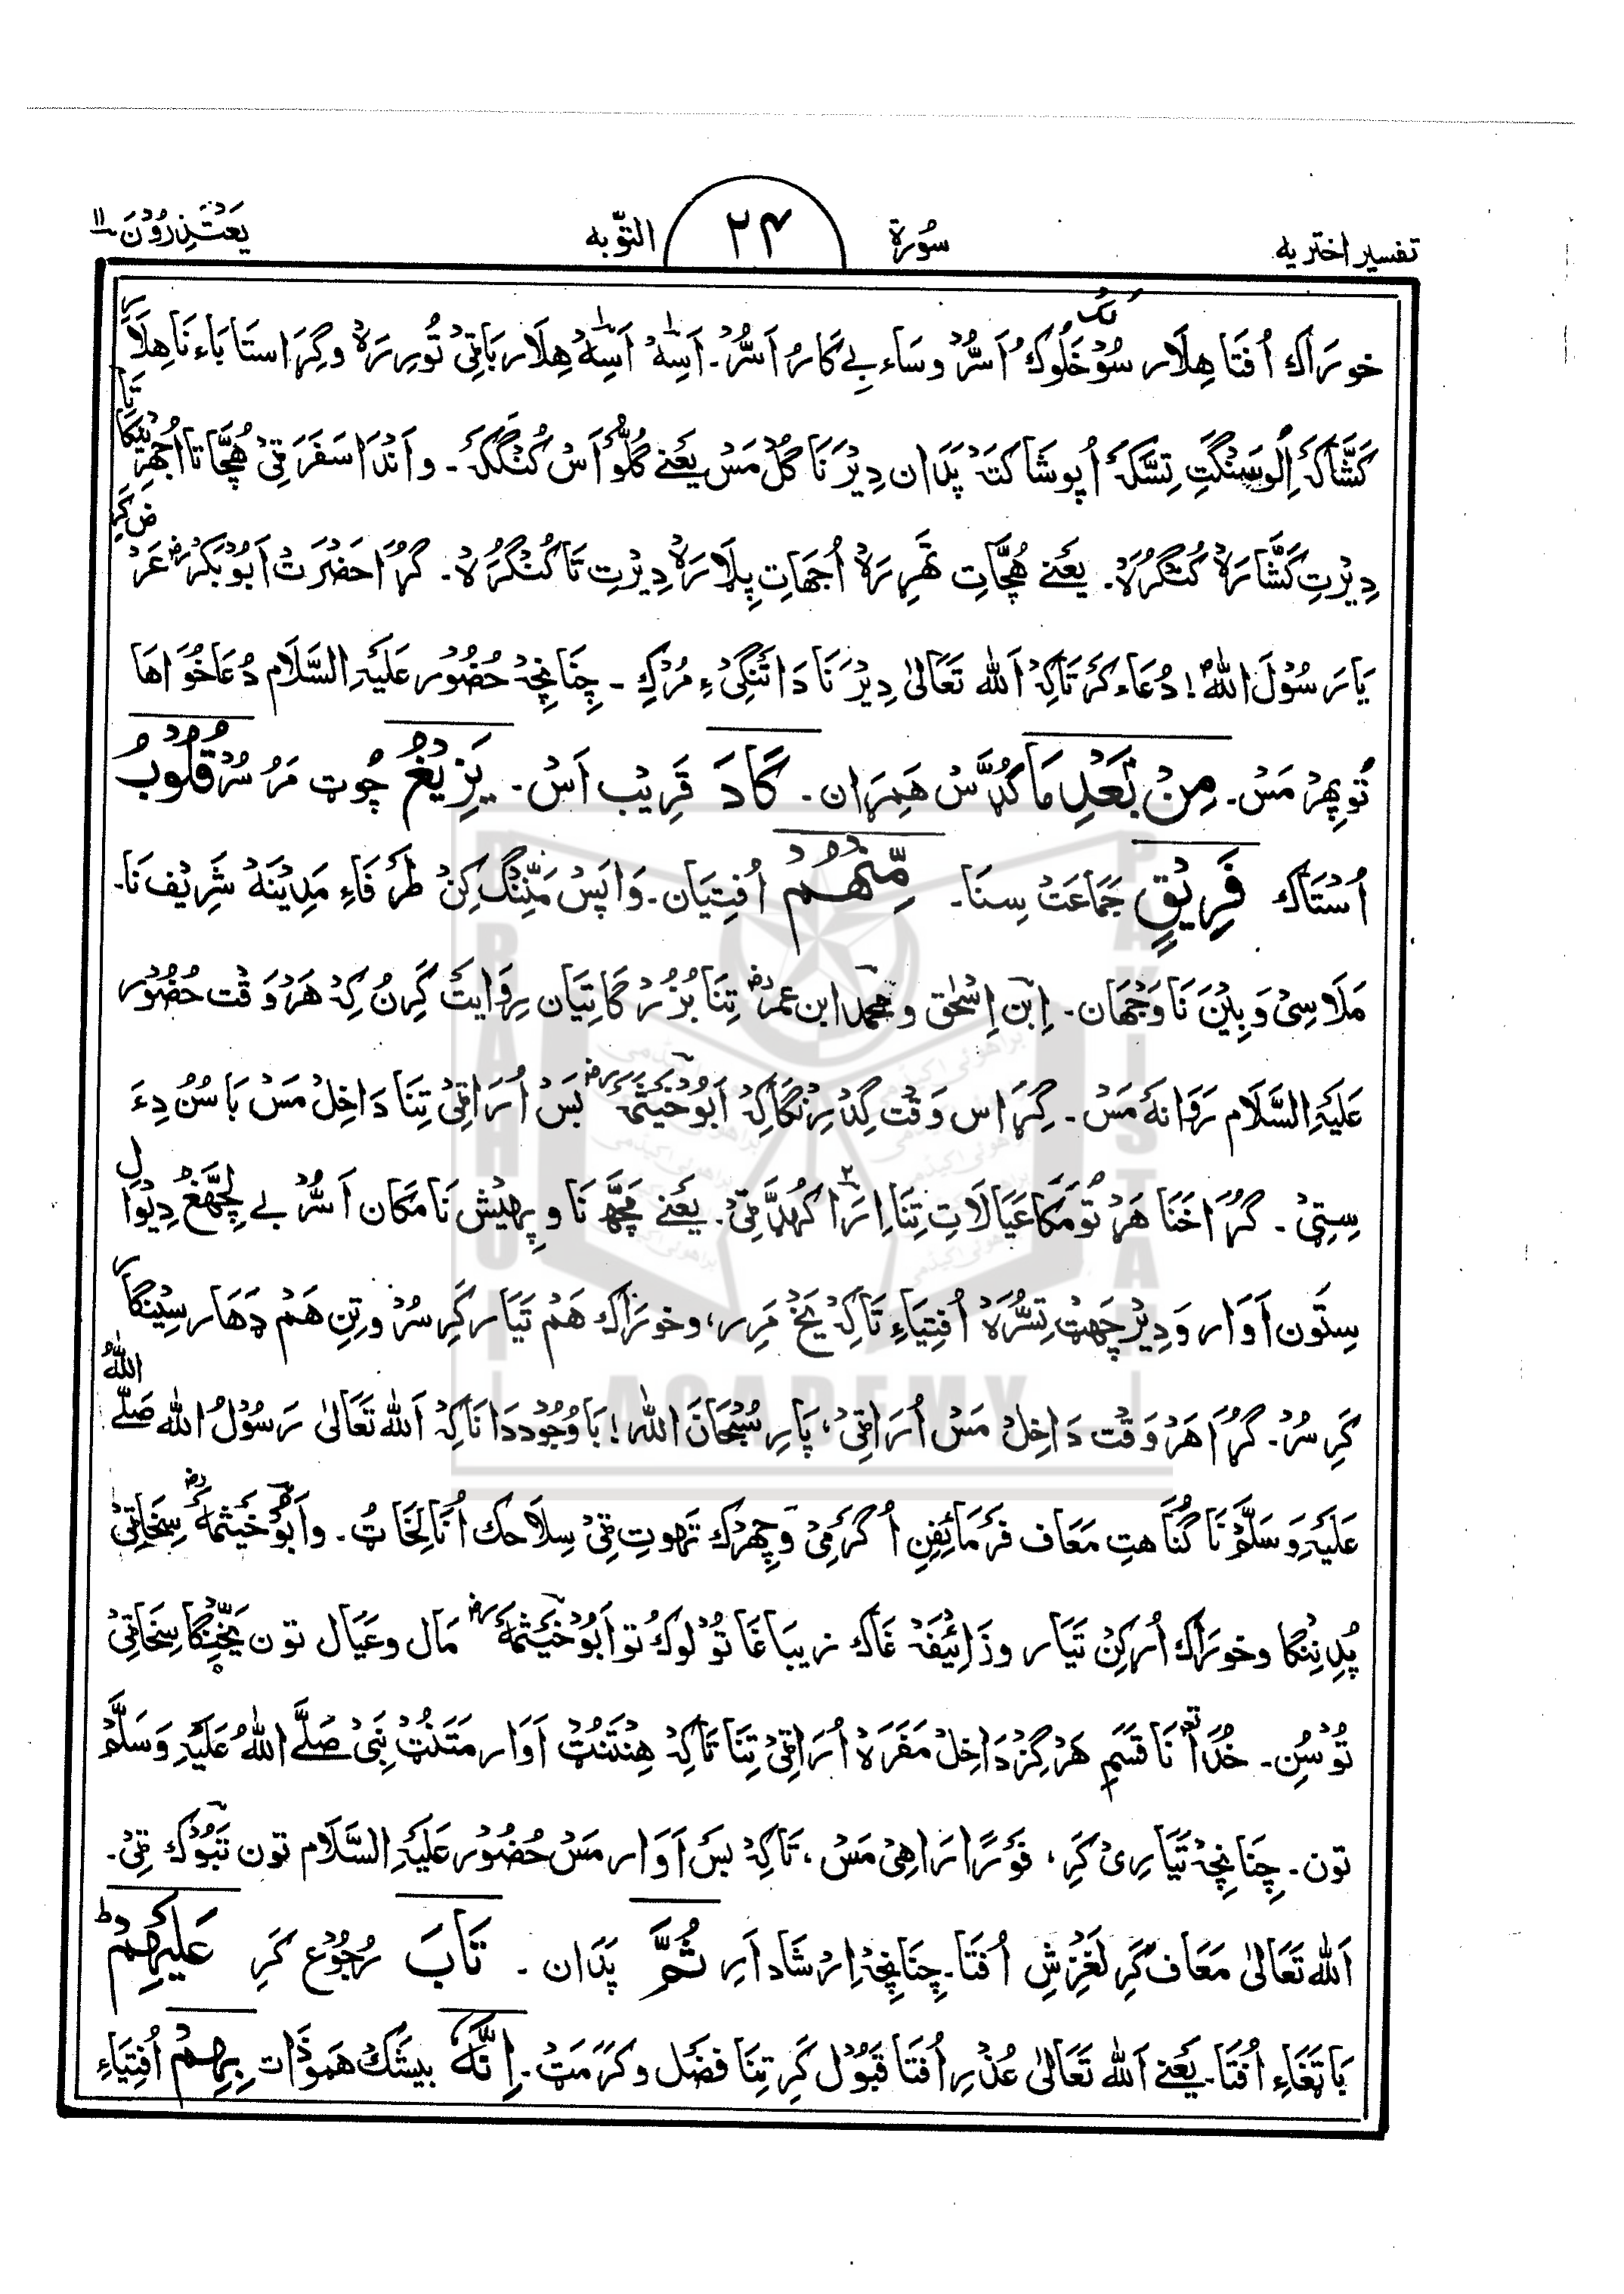 تفسیر اختریہ سُورۃ ۲۴ التّوبہ یَعْتَذِرُوْنَ ۱۱
خورَاک اُفتَا ھِلَار سُوْخَلُوک اَسُّرْ وسَاء بےکَار اَسُّرْ۔ اَسِہْ اَسِہْ ھِلَار بَاتِیْ تُورِرَہْ وگِرَاستَا بَاء نَا ھِلَار
کَشَّاکَہْ اِلُوسَنْگتِ تِسَّکَہْ اُپوشَاکتَہْ پَدَان دِیْرنَا گُلْ مَسْ یَعنے گُلُّو اَسْ کُنْگکَہْ۔ و اَنْدَا سَفَرَ تِیْ ھُچَّاتَا اُجھڑیتکَا تَا
دِیْرتِ کَشَّارَہْ کُنْگرُہْ۔ یعَنے ھُچَّاتِ تَھرِرَہْ اُجھَاتِ پِلَّارَہْ دِیْرتِ تَا کُنْگرَہْ۔ گُڑَا حَضْرَتْ اَبُوْ بَکرْ عَرْض کَرِ
یَارَسُوْلَ اللہ! دُعَاء کَرْ تَاکِہْ اَللہ تَعَالیٰ دِیْرنَا دَا تَنْگیْءِ مُرْکِ۔ چِنَانچِہْ حُضُوْر عَلَیْہِ السَّلَام دُعَا خُوَاھَا
تُوپِھرْ مَسْ۔ مِنْۢ بَعْدِ مَا گُدَّسْ ھَمِرَان۔ کَادَ قَرِیْب اَسْ۔ یَزِیْغُ چُوٹ مَرُسُرْ قُلُوْبُ
اُسْتَاک فَرِیْقٍ جَمَاعَتْ سِنَا۔ مِّنْھُمْ اُفتِیَان۔ وَاپَسْ مَنِّنْگ کِنْ طَرفَاءِ مَدِیْنَہْ شَرِیْف نَا۔
مَلَاسِیْ وَبِیْن نَا وَجْھَان۔ اِبن اِسْحٰق و محمد ابن عمر تِنَا بُزُرْگَاتِیَان رِوَایتْ کَرِنُ کِہْ ھَرْوَقْت حُضُوْر
عَلَیْہِ السَّلَام رَوَانہَ مَسْ۔ گِڑَاس وَقْت گِدْرِنْگَا کِہْ اَبُوْخَیْثَمَہ بَسْ اُرَاتِیْ تِنَا دَاخِلْ مَسْ بَاسُن دِءَ
سِتِیْ۔ گُڑَا خَنَا ھَرْ تُومَکَا عَیَالَاتِ تِنَا اِرَا کُھڈَّتِیْ۔ یعَنے مَچھَّ نَا و پِھیْش نَا مَکَان اَسُّرْ بے لِچھَّغْ دِیْوَال
سِتُون اَوَار وَدِیْر چَھٹ تِسُّرَہْ اُفتِیَاءِ تَاکِہْ یَخْ مَرِر، وخورَاک ھَم تَیَار کَرِسُرْ و تِن ھَم دَھَار سِیْنگَار
کَرِسُرْ۔ گُڑَا ھَرْوَقْت دَاخِلْ مَسْ اُرَاتِیْ، پَارِ سُبْحَانَ اللہ! بَاوُجُوْد دَانَا کِہْ اَللہ تَعَالیٰ رَسُوْلُ اللہ صَلَّے اللہُ
عَلَیْہِ وَسَلَّمْ نَا گُنَاھتِ مَعَاف فَرمَائِفِن اُ گرَمِیْ وَچِھرْک تَھوتِ تِیْ سِلَاحک اُنَا لِخَاتْ۔ و اَبُوْخَیْثمَہ سِخَاتِیْ
پُدِنِنگَا و خورَاک اُرکِنْ تَیَار وذَائِیْفَہْ غَاک زیبَاغَا تُوْلوک تو اَبُوْخَیْثمَہ مَال و عَیَال تون یَخِّنْگَا سِخَاتِیْ
تُوسُن۔ خُدَا نَا قَسَمِ ھَرْگِزْ دَاخِلْ مَفَرَہْ اُرَاتِیْ تِنَا تَاکِہْ ھِنْتَنُٹ اَوَار مَتَنُٹ نَبِیْ صَلَّے اللہُ عَلَیْہِ وَسَلَّمْ
تون۔ چِنَانچِہْ تَیَارِیْ کَرِ، فَورًا رَاھِیْ مَسْ، تَاکِہْ بَسَ اَوَار مَسْ حُضُوْر عَلَیْہِ السَّلَام تون تَبُوْک تِیْ۔
اَللہ تَعَالیٰ مَعَاف کَرِ لَغْزِشِ اُفتَا۔ چِنَانچِہْ اِرْشَاد اَرِ ثُمَّ پَدَان۔ تَابَ رُجُوْع کَرِ عَلَیْھِمْ ؕ
بَاتَغَاءِ اُفتَا۔ یَعنے اَللہ تَعَالیٰ عُذْرِ اُفتَا قَبُوْل کَرِ تِنَا فَضَل و کَرَمَٹ۔ اِنَّہٗ بیشَک ھَمو ذَات بِھِمْ اُفتِیَاءِ
BRAHUI ACADEMY PAKISTAN